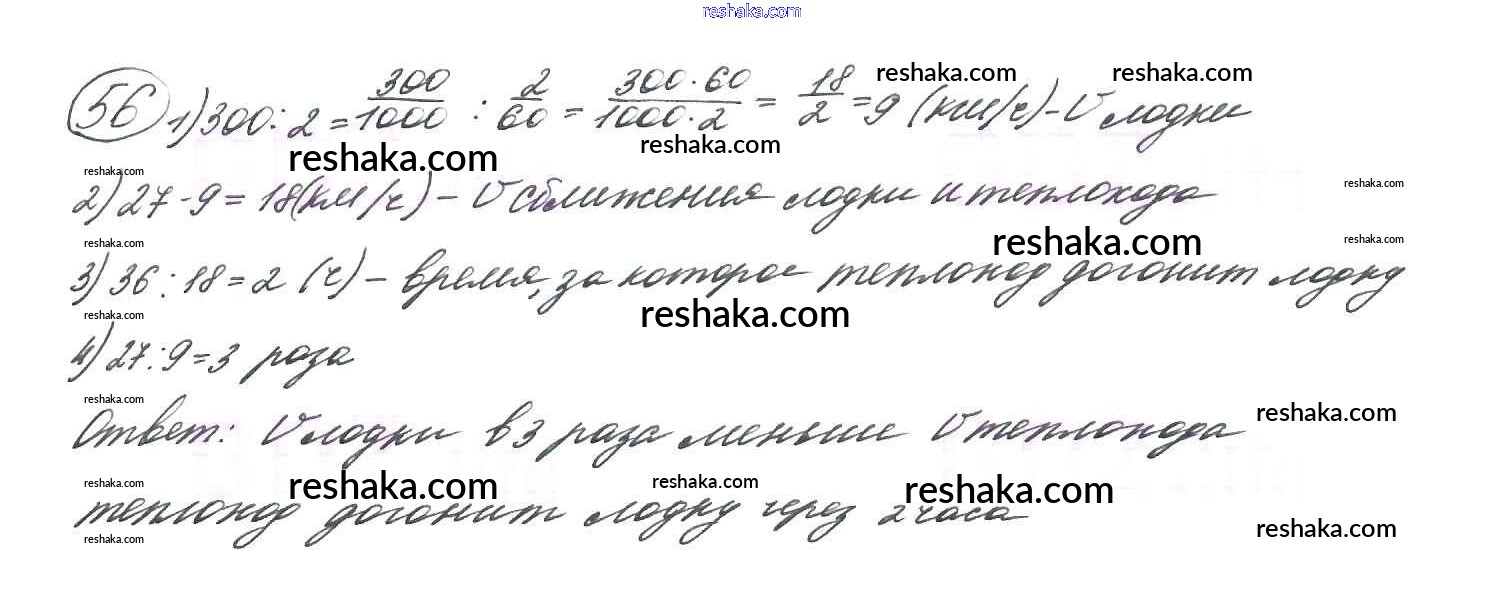 reshaka.com
56 1) 300 : 2 = 300/1000 : 2/60 = 300·60/1000·2 = 18/2 = 9 (км/ч) – V лодки
reshaka.com reshaka.com
reshaka.com reshaka.com
reshaka.com reshaka.com
2) 27 - 9 = 18 (км/ч) – V сближения лодки и теплохода
reshaka.com reshaka.com reshaka.com
3) 36 : 18 = 2 (ч) – время, за которое теплоход догонит лодку
reshaka.com reshaka.com
4) 27 : 9 = 3 раза
reshaka.com reshaka.com
Ответ: V лодки в 3 раза меньше V теплохода
reshaka.com reshaka.com reshaka.com reshaka.com
теплоход догонит лодку через 2 часа
reshaka.com reshaka.com